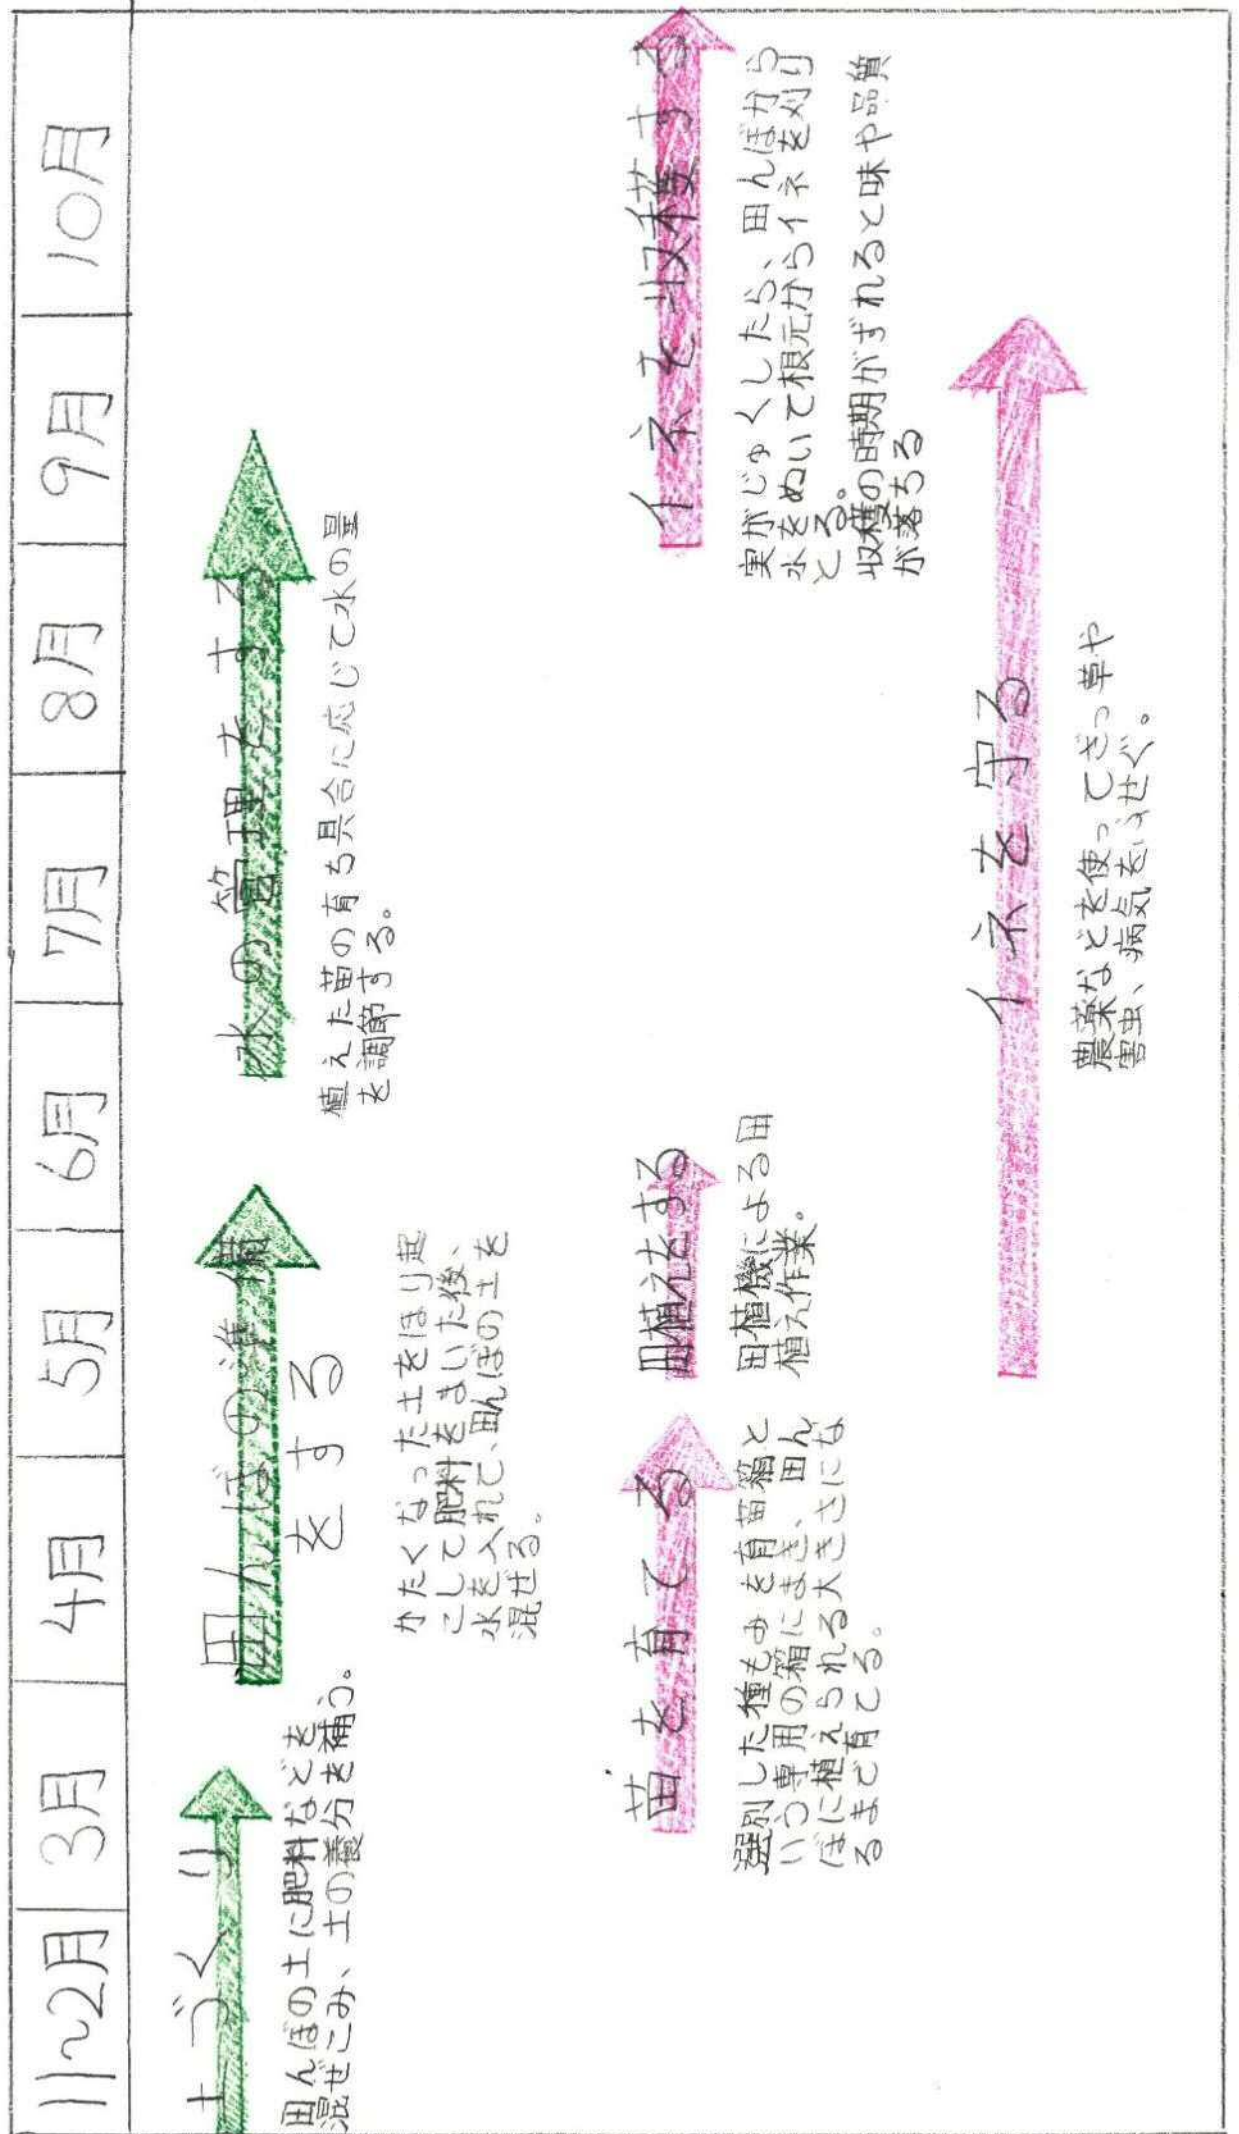 11~2月
3月
4月
5月
6月
7月
8月
9月
10月
土づくり
田んぼの土に肥料などを
混ぜこみ、土の養分を補う。
田んぼの準備
をする
かたくなった土をほり起
こして肥料をまいた後、
水を入れて、田んぼの土を
混ぜる。
水の管理をする
植えた苗の育ち具合に応じて水の量
を調節する。
苗を育てる
選別した種もみを育苗箱と
いう専用の箱にまき、田ん
ぼに植えられる大きさにな
るまで育てる。
田植えをする
田植機による田
植え作業。
イネを収穫する
実がじゅくしたら、田んぼから
水をぬいて根元からイネを刈り
とる。
収穫の時期がずれると味や品質
が落ちる
イネを守る
農薬などを使ってざっ草や
害虫、病気をふせぐ。